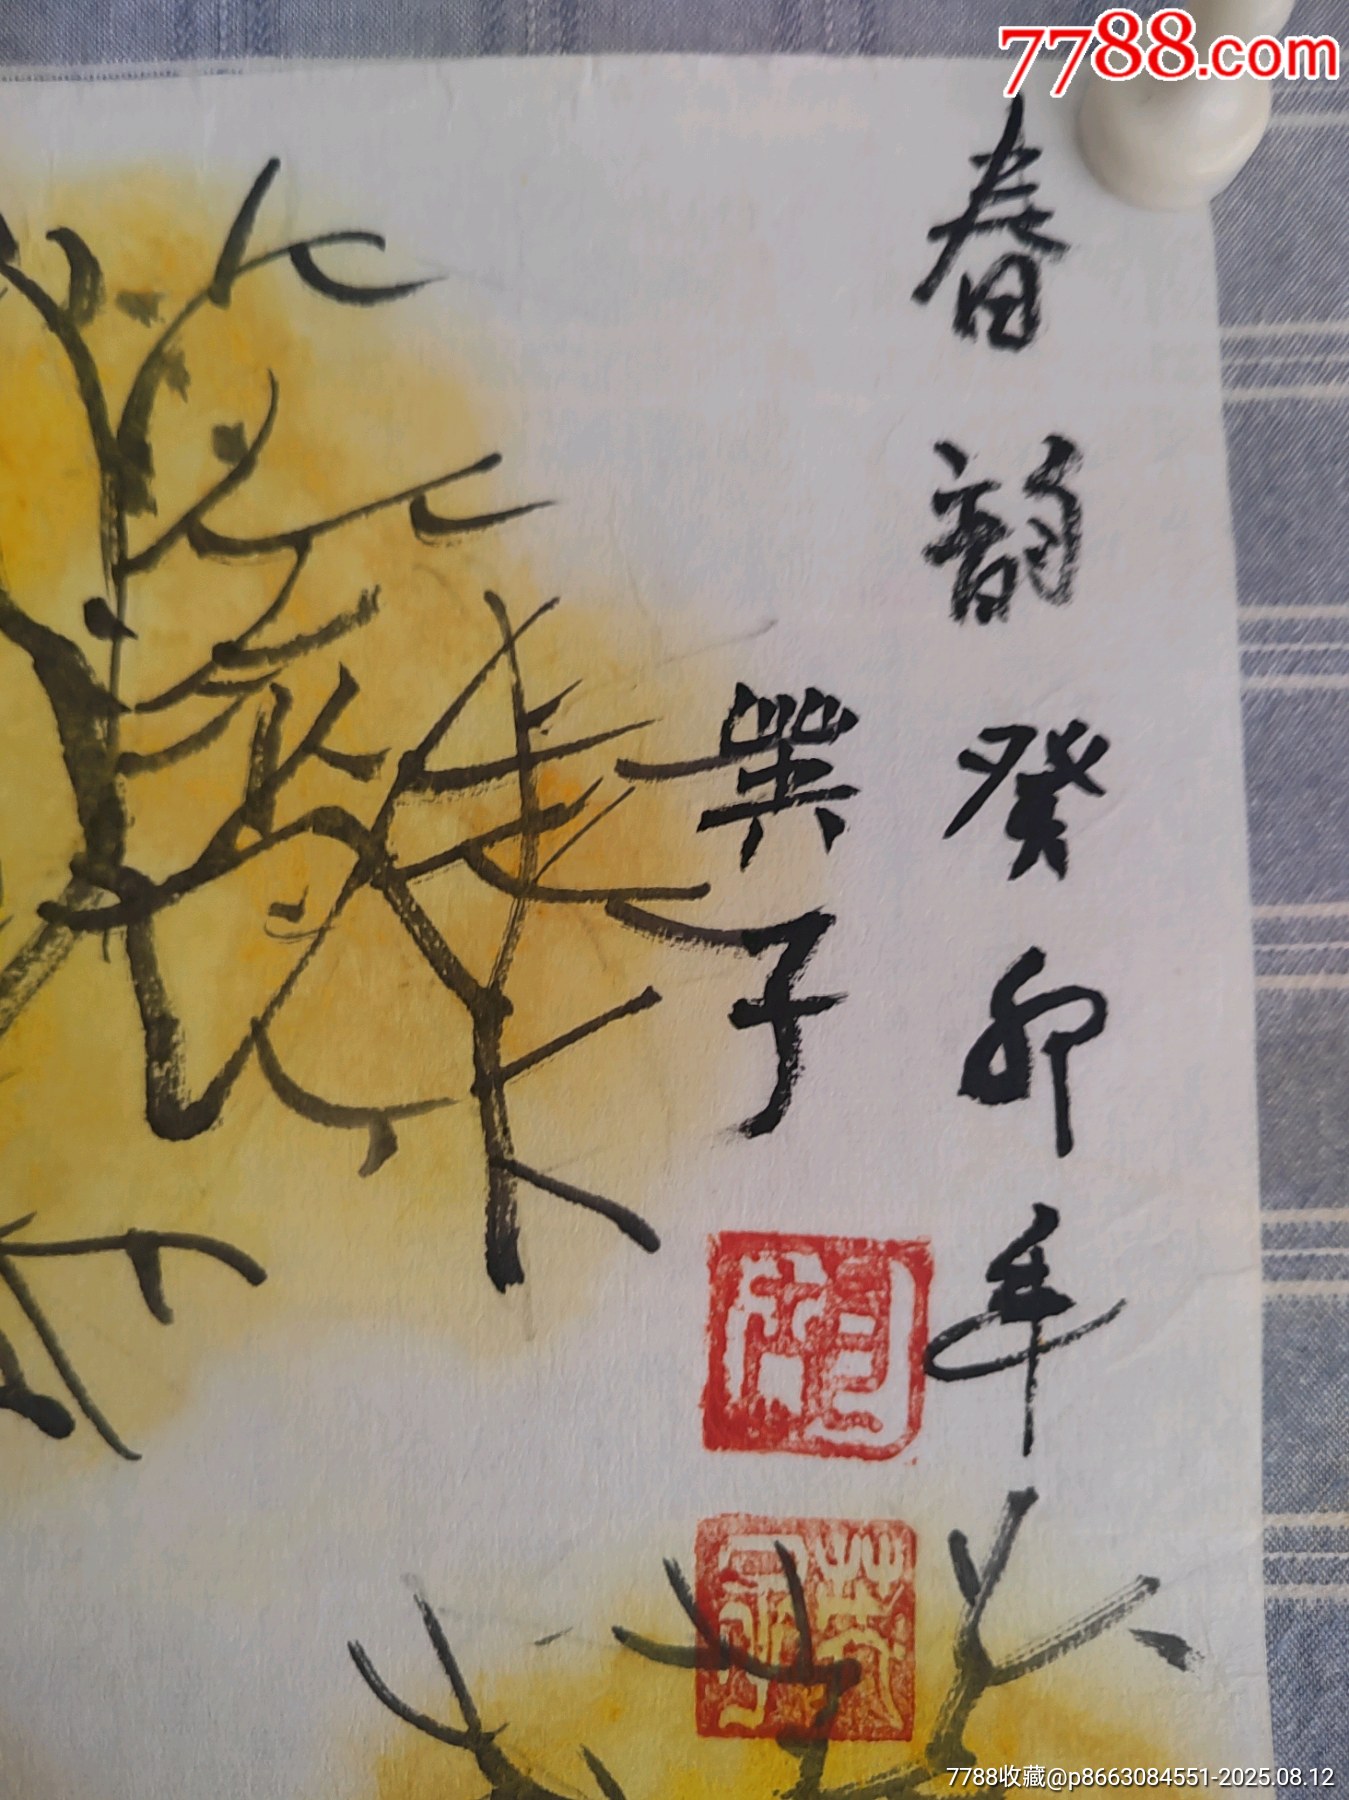 7788.com
春韵癸卯年
巽子
7788收藏@p8663084551-2025.08.12